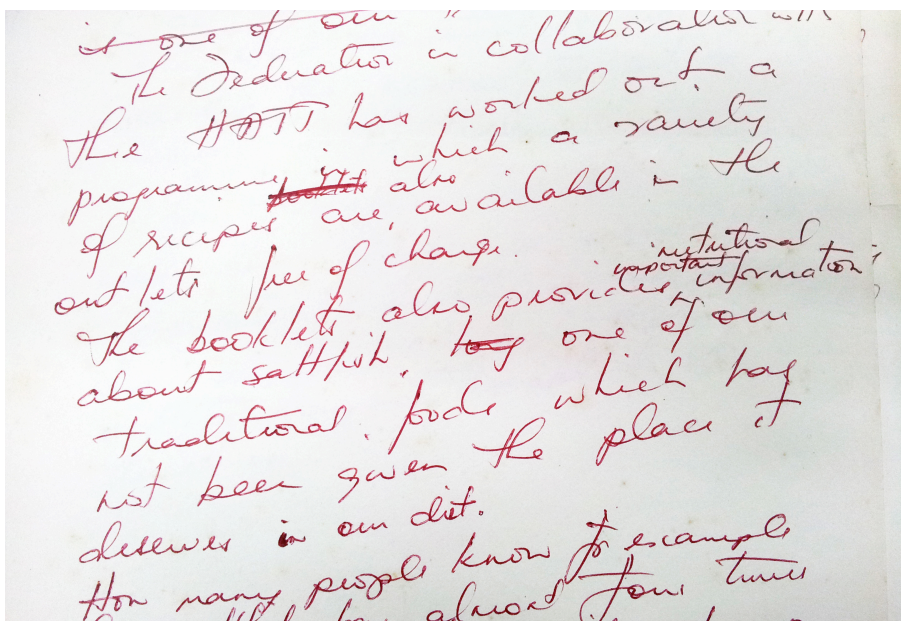 is one of our
The Federation in collaboration with
the HATT has worked out a
programme in which a variety
of recipes are also available in the
outlets free of charge.
nutritional
important
The booklets also provides information
about saltfish, one of our
traditional foods which has
not been given the place it
deserves in our diet.
How many people know for example
almost four times